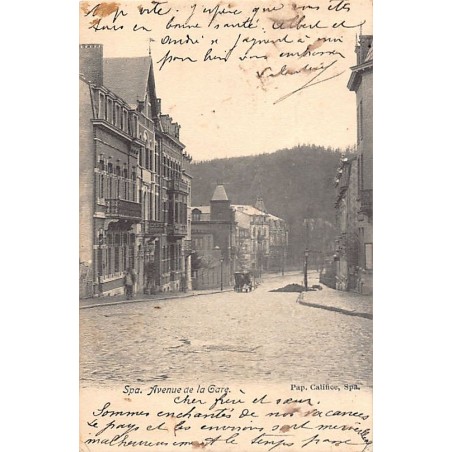 trop vite. J'espère que vous êtes
en bonne santé. Albert et
André se joignent à moi
pour bien vous embrasser
Valentine
Spa. Avenue de la Gare.
Pap. Califice, Spa.
Cher frère et sœur.
Sommes enchantés de nos vacances
le pays et les environs sont merveilleux
malheureusement le temps passe